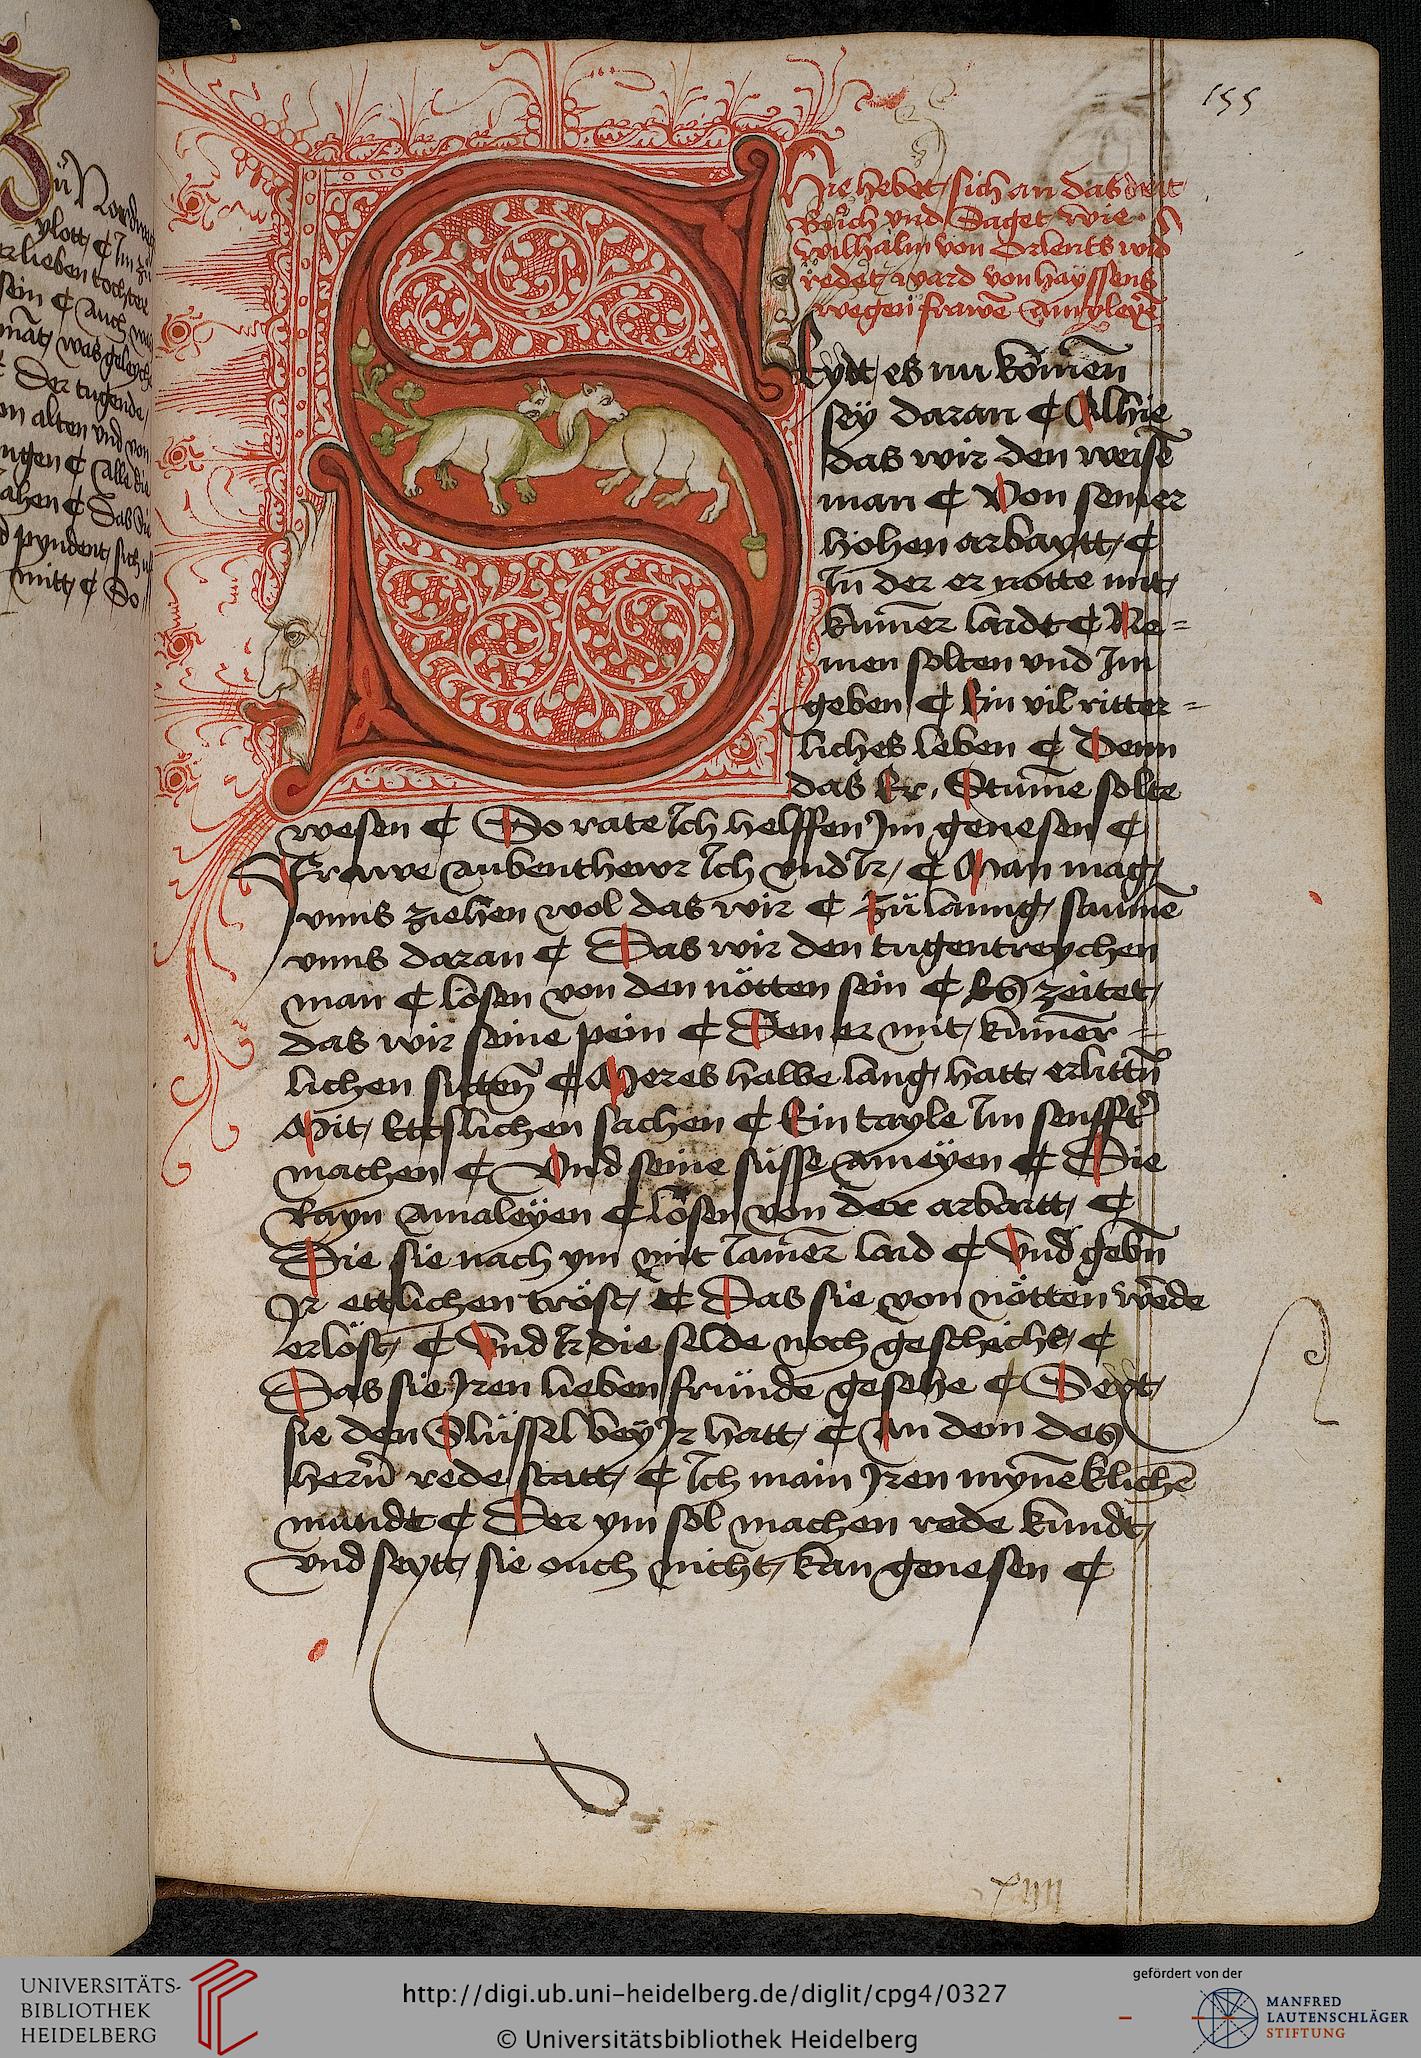 155
Hie hebet sich an das dritt
Buͦch vnd Saget wie
Wilhalm von Orlents wid
redet ward von hayssens
wegen frawē Amyleyē
Eydt es nu kömen
sey daran ¢ Alhie
das wir den weisē
man ¢ Von seiner
hohen arbaytt ¢
In der er notte mit
kumēr laidt ¢ Ne=
men solten vnd Im
geben ¢ Ein vil ritter=
liches leben ¢ Denn
das Er Stume solte
wesen ¢ So rate Ich helffen Im genesen ¢
Frawe aubenthewr Ich vnd Ir ¢ Man mag
vnns ziehen wol das wir ¢ Zü lanng saumē
vnns daran ¢ Das wir den tugentreychen
man ¢ lösen von den nötten sein ¢ Es zeitet
das wir seine pein ¢ Den er mit kumēr=
lichen sitten ¢ Meres halbe lang hatt erlittn
Mit ettslichen sachen ¢ Ein tayle Im senfft
machen ¢ Vnd seine süsse ameyen ¢ Die
Rayn amaleyen ¢ lösen von der arbaitt ¢
Die sie nach ym mit Iamēr laid ¢ Vnd gebn
Ir ettlichen tröst ¢ Das sie von nötten wēde
erlöst ¢ Vnd Ir die selde noch geschicht ¢
Das sie Iren lieben fründe gesehe ¢ Seyt
sie den Slüssel bey Ir hatt ¢ An dem des
herñ rede statt ¢ Ich main Iren mynēklichē
mundt ¢ Der ym sol machen rede kundt
vnd seytt sie ouch nicht kan genesen ¢
UNIVERSITÄTS-
BIBLIOTHEK
HEIDELBERG
http://digi.ub.uni-heidelberg.de/diglit/cpg4/0327
© Universitätsbibliothek Heidelberg
gefördert von der
MANFRED
LAUTENSCHLÄGER
STIFTUNG